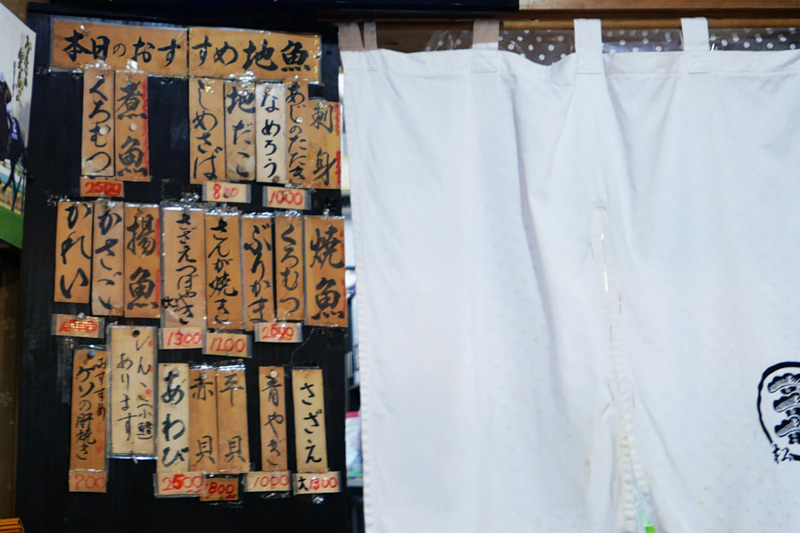 本日のおすすめ地魚
刺身
あじのたたき
なめろう
1000
地だこ
しめさば
800
煮魚
くろむつ
2500
焼魚
くろむつ
ぶりかま
さんが焼き
1200
さざえつぼやき
1300
揚魚
かさご
かれい
さざえ
大1300
青やぎ
1000
平貝
赤貝
800
あわび
2500
しんこ(小鰭)
あります
みすずめ
ゲソの肝焼き
700
松